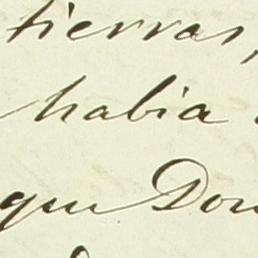 tierras,
habia
que Don